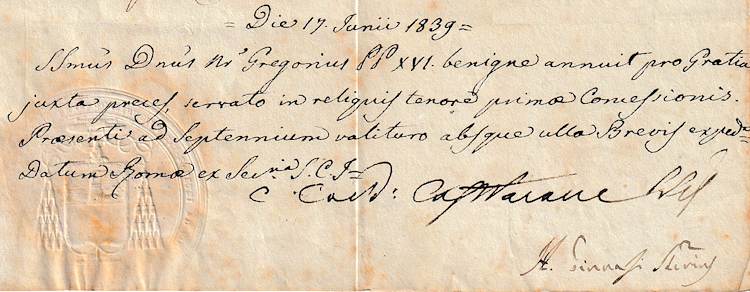 = Die 17. Junii 1839 =
SSmus Dnus Nr Gregorius PP XVI. benigne annuit pro Gratia
juxta preces, servato in reliquis tenore primæ Concessionis.
Præsenti ad Septennium valituro absque ulla Brevis exped.
Datum Romæ ex Sec.ria S. C. I =
C. Card: